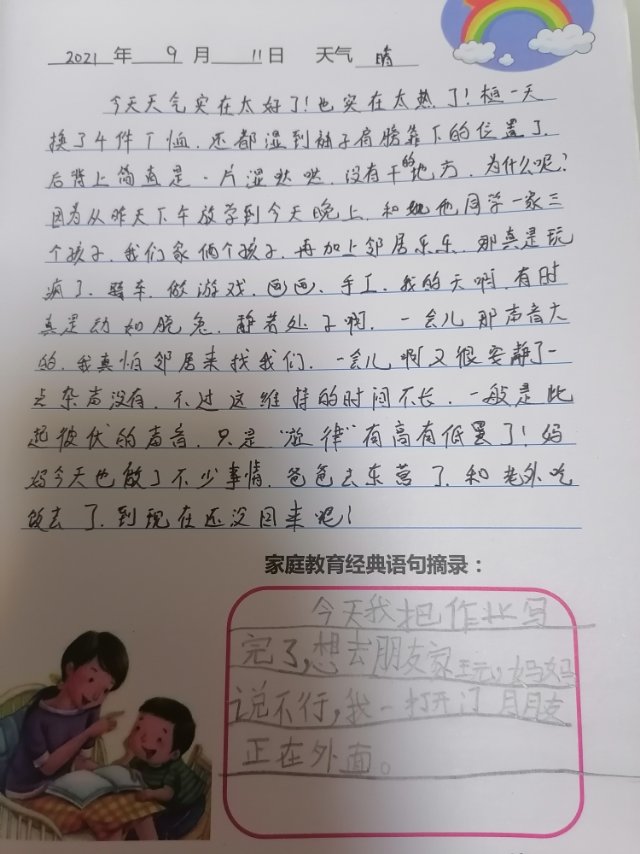 2021 年 9 月 11 日 天气 晴
今天天气实在太好了!也实在太热了!桓一天
换了4件T恤.还都湿到袖子肩膀靠下的位置了.
后背上简直是一片湿哒哒.没有干的地方.为什么呢?
因为从昨天下午放学到今天晚上.和她他同学一家三
个孩子.我们家俩个孩子.再加上邻居乐乐.那真是玩
疯了.骑车.做游戏.画画、手工.我的天啊.有时
真是动如脱兔.静若处子啊.一会儿那声音大
的.我真怕邻居来找我们.一会儿啊又很安静了一
点杂声没有.不过这维持的时间不长.一般是此
起彼伏的声音.只是“旋律”有高有低罢了!妈
妈今天也做了不少事情.爸爸去东营了.和老外吃
饭去了.到现在还没回来呢!
家庭教育经典语句摘录:
今天我把作业写
完了,想去朋友家王元,妈妈
说不行,我一打开门 朋友
正在外面。